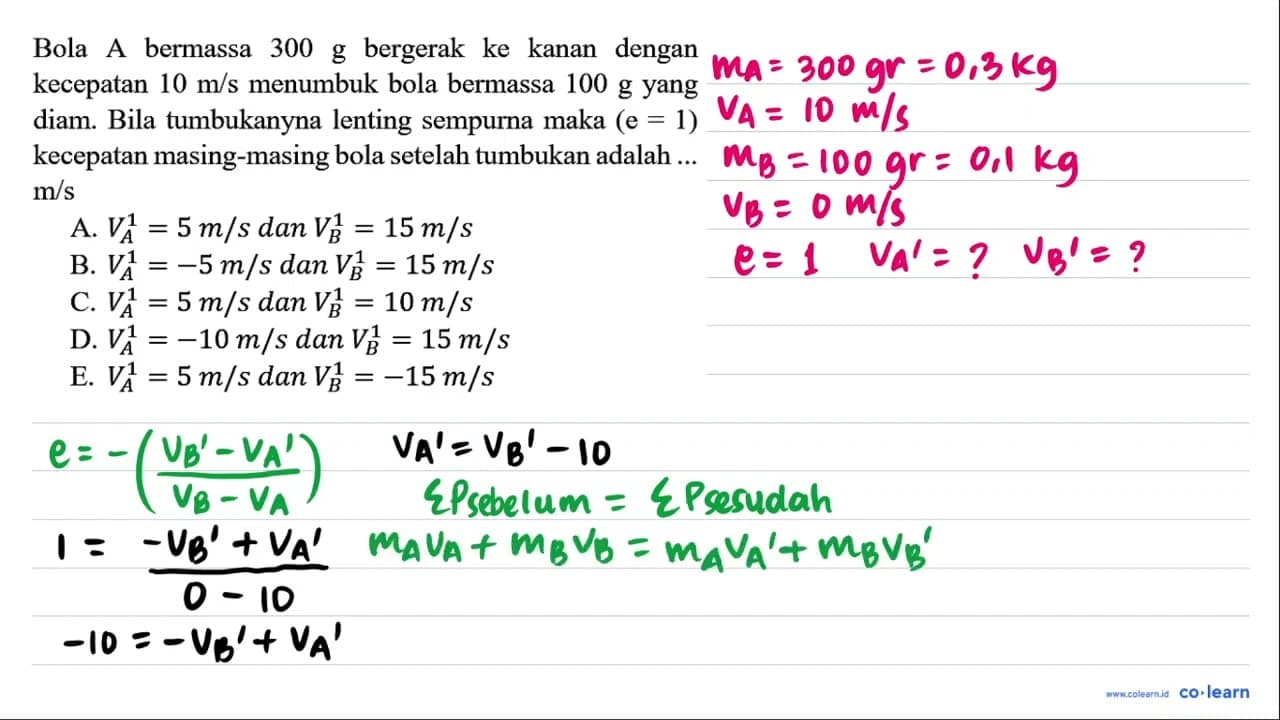 Bola A bermassa 300 g bergerak ke kanan dengan
kecepatan 10 m/s menumbuk bola bermassa 100 g yang
diam. Bila tumbukanyna lenting sempurna maka (e = 1)
kecepatan masing-masing bola setelah tumbukan adalah ...
m/s
A. V_A^1 = 5 m/s dan V_B^1 = 15 m/s
B. V_A^1 = −5 m/s dan V_B^1 = 15 m/s
C. V_A^1 = 5 m/s dan V_B^1 = 10 m/s
D. V_A^1 = −10 m/s dan V_B^1 = 15 m/s
E. V_A^1 = 5 m/s dan V_B^1 = −15 m/s
mA = 300 gr = 0,3 kg
VA = 10 m/s
mB = 100 gr = 0,1 kg
VB = 0 m/s
e = 1 VA' = ? VB' = ?
e = -((VB' - VA')/(VB - VA))
1 = (-VB' + VA')/(0 - 10)
-10 = -VB' + VA'
VA' = VB' - 10
ΣPsebelum = ΣPsesudah
mAVA + mBVB = mAVA' + mBVB'
www.colearn.id co·learn